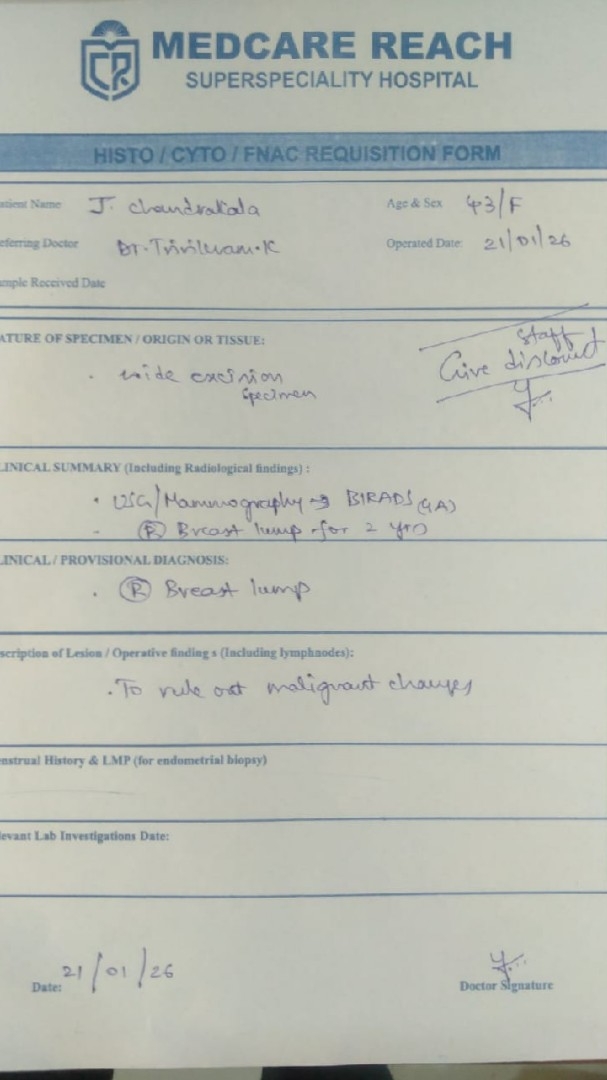 MEDCARE REACH
SUPERSPECIALITY HOSPITAL
HISTO / CYTO / FNAC REQUISITION FORM
atient Name J. Chandrakala Age & Sex 43/F
eferring Doctor Dr. K Operated Date: 21/01/26
ample Received Date
ATURE OF SPECIMEN / ORIGIN OR TISSUE:
Staff
Give discount
. wide excision
specimen
LINICAL SUMMARY (Including Radiological findings) :
• USG/Mammography → BIRADS (4A)
- (R) Breast lump for 2 yrs
LINICAL / PROVISIONAL DIAGNOSIS:
. (R) Breast lump
scription of Lesion / Operative finding s (Including lymphnodes):
. To rule out malignant changes
nstrual History & LMP (for endometrial biopsy)
levant Lab Investigations Date:
Date: 21/01/26
Doctor Signature